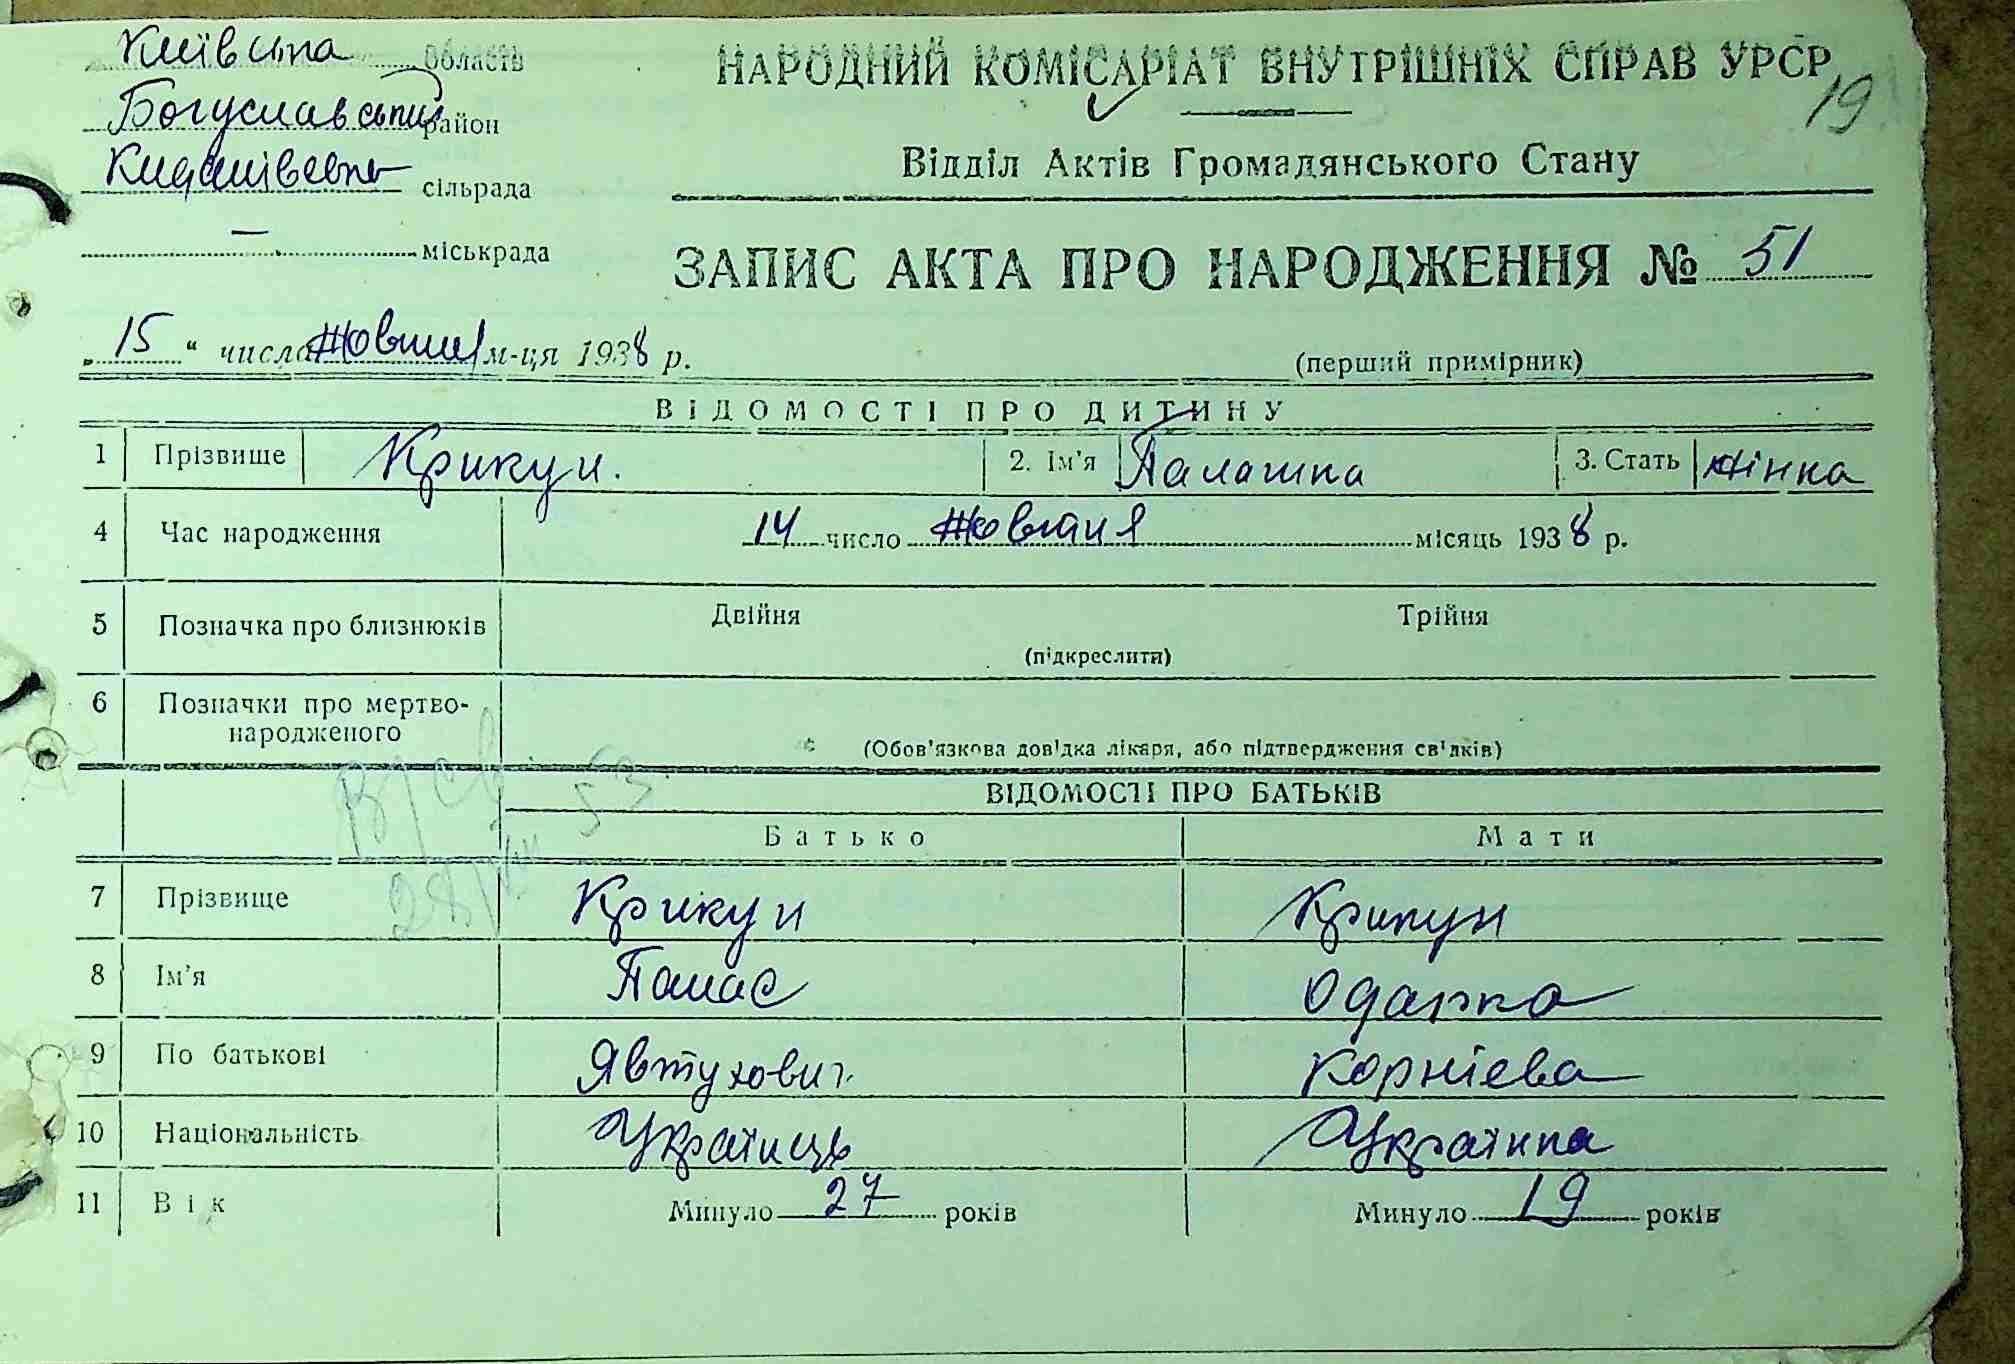 Київська область
НАРОДНИЙ КОМІСАРІАТ ВНУТРІШНІХ СПРАВ УРСР
19
Богуславський район
Відділ Актів Громадянського Стану
сільрада
— міськрада
ЗАПИС АКТА ПРО НАРОДЖЕННЯ № 51
„15“ числа Жовтня м-ця 1938 р.
(перший примірник)
ВІДОМОСТІ ПРО ДИТИНУ
1 Прізвище Крикун. 2. Ім'я Палашка 3. Стать жінка
4 Час народження 14 число Жовтня місяць 1938 р.
5 Позначка про близнюків Двійня Трійня
(підкреслити)
6 Позначки про мертво-
народженого
(Обов'язкова довідка лікаря, або підтвердження свідків)
53
ВІДОМОСТІ ПРО БАТЬКІВ
Батько Мати
7 Прізвище Крикун Крикун
8 Ім'я Панас Одарка
9 По батькові Явтухович Корнієва
10 Національність Українець Українка
11 Вік Минуло 27 років Минуло 19 років